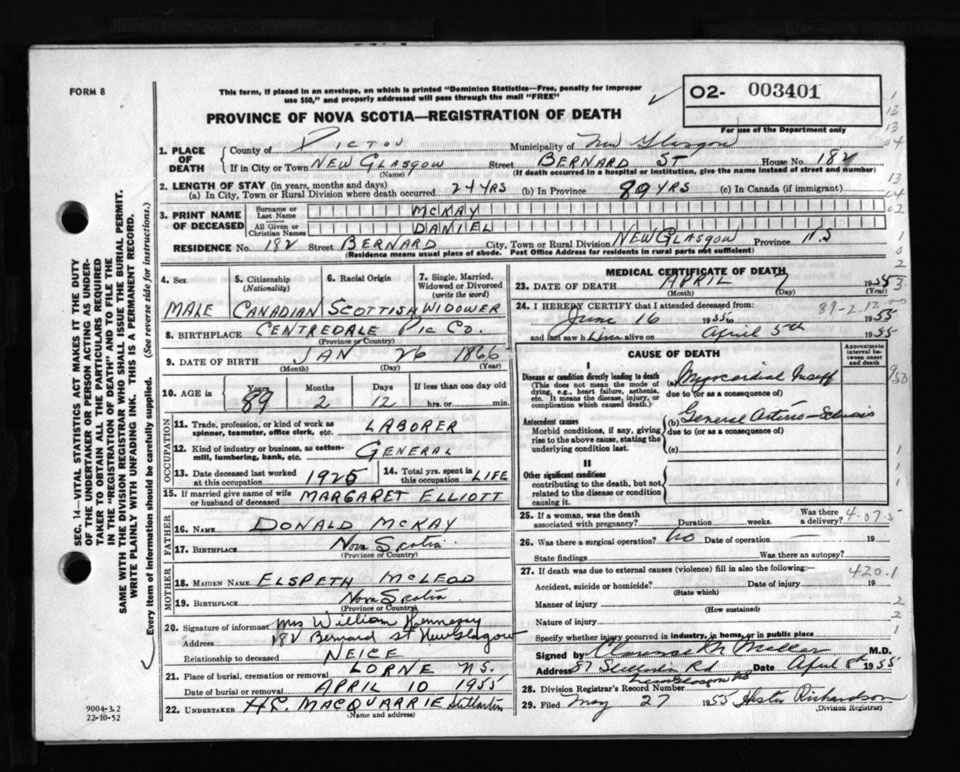 FORM 8
This form, if placed in an envelope, on which is printed "Dominion Statistics—Free, penalty for improper
use $50," and properly addressed will pass through the mail "FREE"
PROVINCE OF NOVA SCOTIA—REGISTRATION OF DEATH
O2- 003401
For use of the Department only
1. PLACE OF DEATH
County of PICTOU Municipality of New Glasgow
If in City or Town NEW GLASGOW (Name) Street BERNARD ST House No. 182
(If death occurred in a hospital or institution, give the name instead of street and number)
2. LENGTH OF STAY (in years, months and days)
(a) In City, Town or Rural Division where death occurred 24 YRS (b) In Province 89 YRS (c) In Canada (if immigrant)
3. PRINT NAME OF DECEASED
Surname or Last Name MCKAY
All Given or Christian Names DANIEL
RESIDENCE No. 182 Street BERNARD City, Town or Rural Division NEW GLASGOW Province N.S
(Residence means usual place of abode. Post Office Address for residents in rural parts not sufficient)
4. Sex 5. Citizenship (Nationality) 6. Racial Origin 7. Single, Married, Widowed or Divorced (write the word)
MALE CANADIAN SCOTTISH WIDOWER
8. BIRTHPLACE CENTREDALE PIC CO.
(Province or Country)
9. DATE OF BIRTH JAN 26 1866
(Month) (Day) (Year)
10. AGE in Years Months Days If less than one day old
89 2 12 hrs. or min.
OCCUPATION
11. Trade, profession, or kind of work as spinner, teamster, office clerk, etc. LABORER
12. Kind of industry or business, as cotton-mill, lumbering, bank, etc. GENERAL
13. Date deceased last worked at this occupation 1925 14. Total yrs. spent in this occupation LIFE
15. If married give name of wife or husband of deceased MARGARET ELLIOTT
FATHER
16. NAME DONALD MCKAY
17. BIRTHPLACE Nova Scotia
(Province or Country)
MOTHER
18. MAIDEN NAME ELSPETH MCLEOD
19. BIRTHPLACE Nova Scotia
(Province or Country)
20. Signature of informant Mrs William Hennessy
Address 182 Bernard st New Glasgow
Relationship to deceased NEICE
21. Place of burial, cremation or removal LORNE NS.
Date of burial or removal APRIL 10 1955
22. UNDERTAKER H.C. MACQUARRIE
(Name and address)
MEDICAL CERTIFICATE OF DEATH
23. DATE OF DEATH APRIL 7 1955
(Month) (Day) (Year)
24. I HEREBY CERTIFY that I attended deceased from:
89-2 12.00
June 16 1955 to 1955
and last saw him alive on April 5th 1955
CAUSE OF DEATH
Approximate interval between onset and death
I
Disease or condition directly leading to death
(This does not mean the mode of dying, e.g., heart failure, asthenia, etc. It means the disease, injury, or complication which caused death.)
(a) Myocardial Insuff
due to (or as a consequence of)
Antecedent causes
Morbid conditions, if any, giving rise to the above cause, stating the underlying condition last.
(b) General Arterio-Sclerosis
due to (or as a consequence of)
(c)
II
Other significant conditions
contributing to the death, but not related to the disease or condition causing it.
25. If a woman, was the death associated with pregnancy? Duration weeks. Was there a delivery? 4-07.5
26. Was there a surgical operation? no Date of operation — 19
State findings Was there an autopsy?
27. If death was due to external causes (violence) fill in also the following:— 420.1
Accident, suicide or homicide? Date of injury 19
(State which)
Manner of injury
(How sustained)
Nature of injury
Specify whether injury occurred in industry, in home, or in public place
Signed by Clarence M Miller M.D.
Address 87 Rd Date April 8th 1955
New Glasgow NS
28. Division Registrar's Record Number
29. Filed May 27 1955 Hester Richardson
(Division Registrar)
SEC. 14—VITAL STATISTICS ACT MAKES IT THE DUTY
OF THE UNDERTAKER OR PERSON ACTING AS UNDER-
TAKER TO OBTAIN ALL THE PARTICULARS REQUIRED
IN THE "REGISTRATION OF DEATH" AND TO FILE THE
SAME WITH THE DIVISION REGISTRAR WHO SHALL ISSUE THE BURIAL PERMIT.
WRITE PLAINLY WITH UNFADING INK. THIS IS A PERMANENT RECORD.
Every item of information should be carefully supplied. (See reverse side for instructions.)
9004-3.2
22-10-52